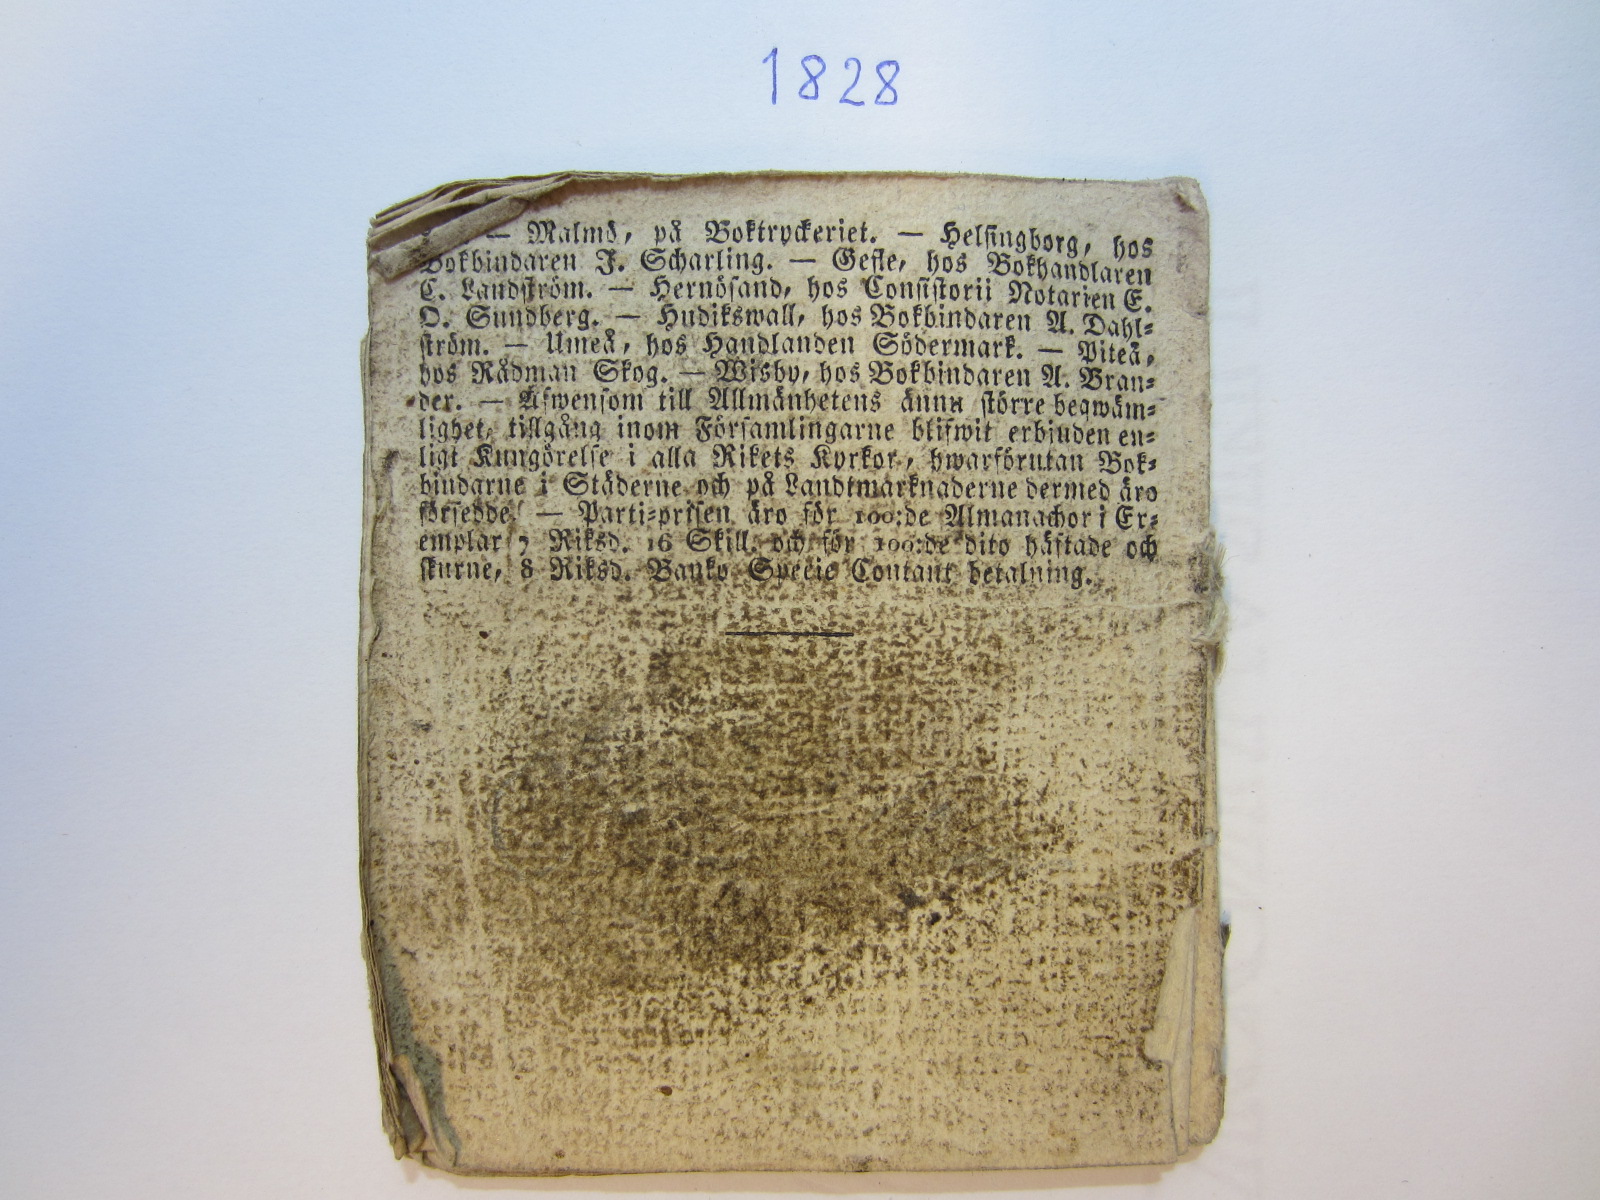 1828
— Malmö, på Boktryckeriet. — Helsingborg, hos
Bokbindaren J. Scharling. — Gefle, hos Bokhandlaren
C. Landström. — Hernösand, hos Consistorii Notarien E.
O. Sundberg. — Hudikswall, hos Bokbindaren A. Dahl=
ström. — Umeå, hos Handlanden Södermark. — Piteå,
hos Rådman Skog. — Wisby, hos Bokbindaren A. Bran=
der. — Äfwensom till Allmänhetens ännu större beqwäm=
lighet, tillgång inom Församlingarne blifwit erbjuden en=
ligt Kungörelse i alla Rikets Kyrkor, hwarförutan Bok=
bindarne i Städerne och på Landtmarknaderne dermed äro
försedde. — Parti=prisen äro för 100:de Almanachor i Ex=
emplar 7 Riksd. 16 Skill. och för 100:de dito häftade och
skurne, 8 Riksd. Banko Specie Contant betalning.